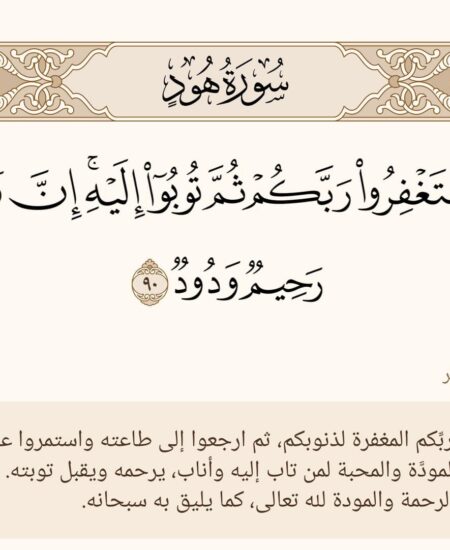 سُورَةُ هُودٍ
رَبَّكُمْ ثُمَّ تُوبُوٓاْ إِلَيْهِۚ إِنَّ
رَحِيمٞ وَدُودٞ ٩٠
ربِّكم المغفرة لذنوبكم، ثم ارجعوا إلى طاعته واستمروا
المودَّة والمحبة لمن تاب إليه وأناب، يرحمه ويقبل توبته.
الرحمة والمودة لله تعالى، كما يليق به سبحانه.